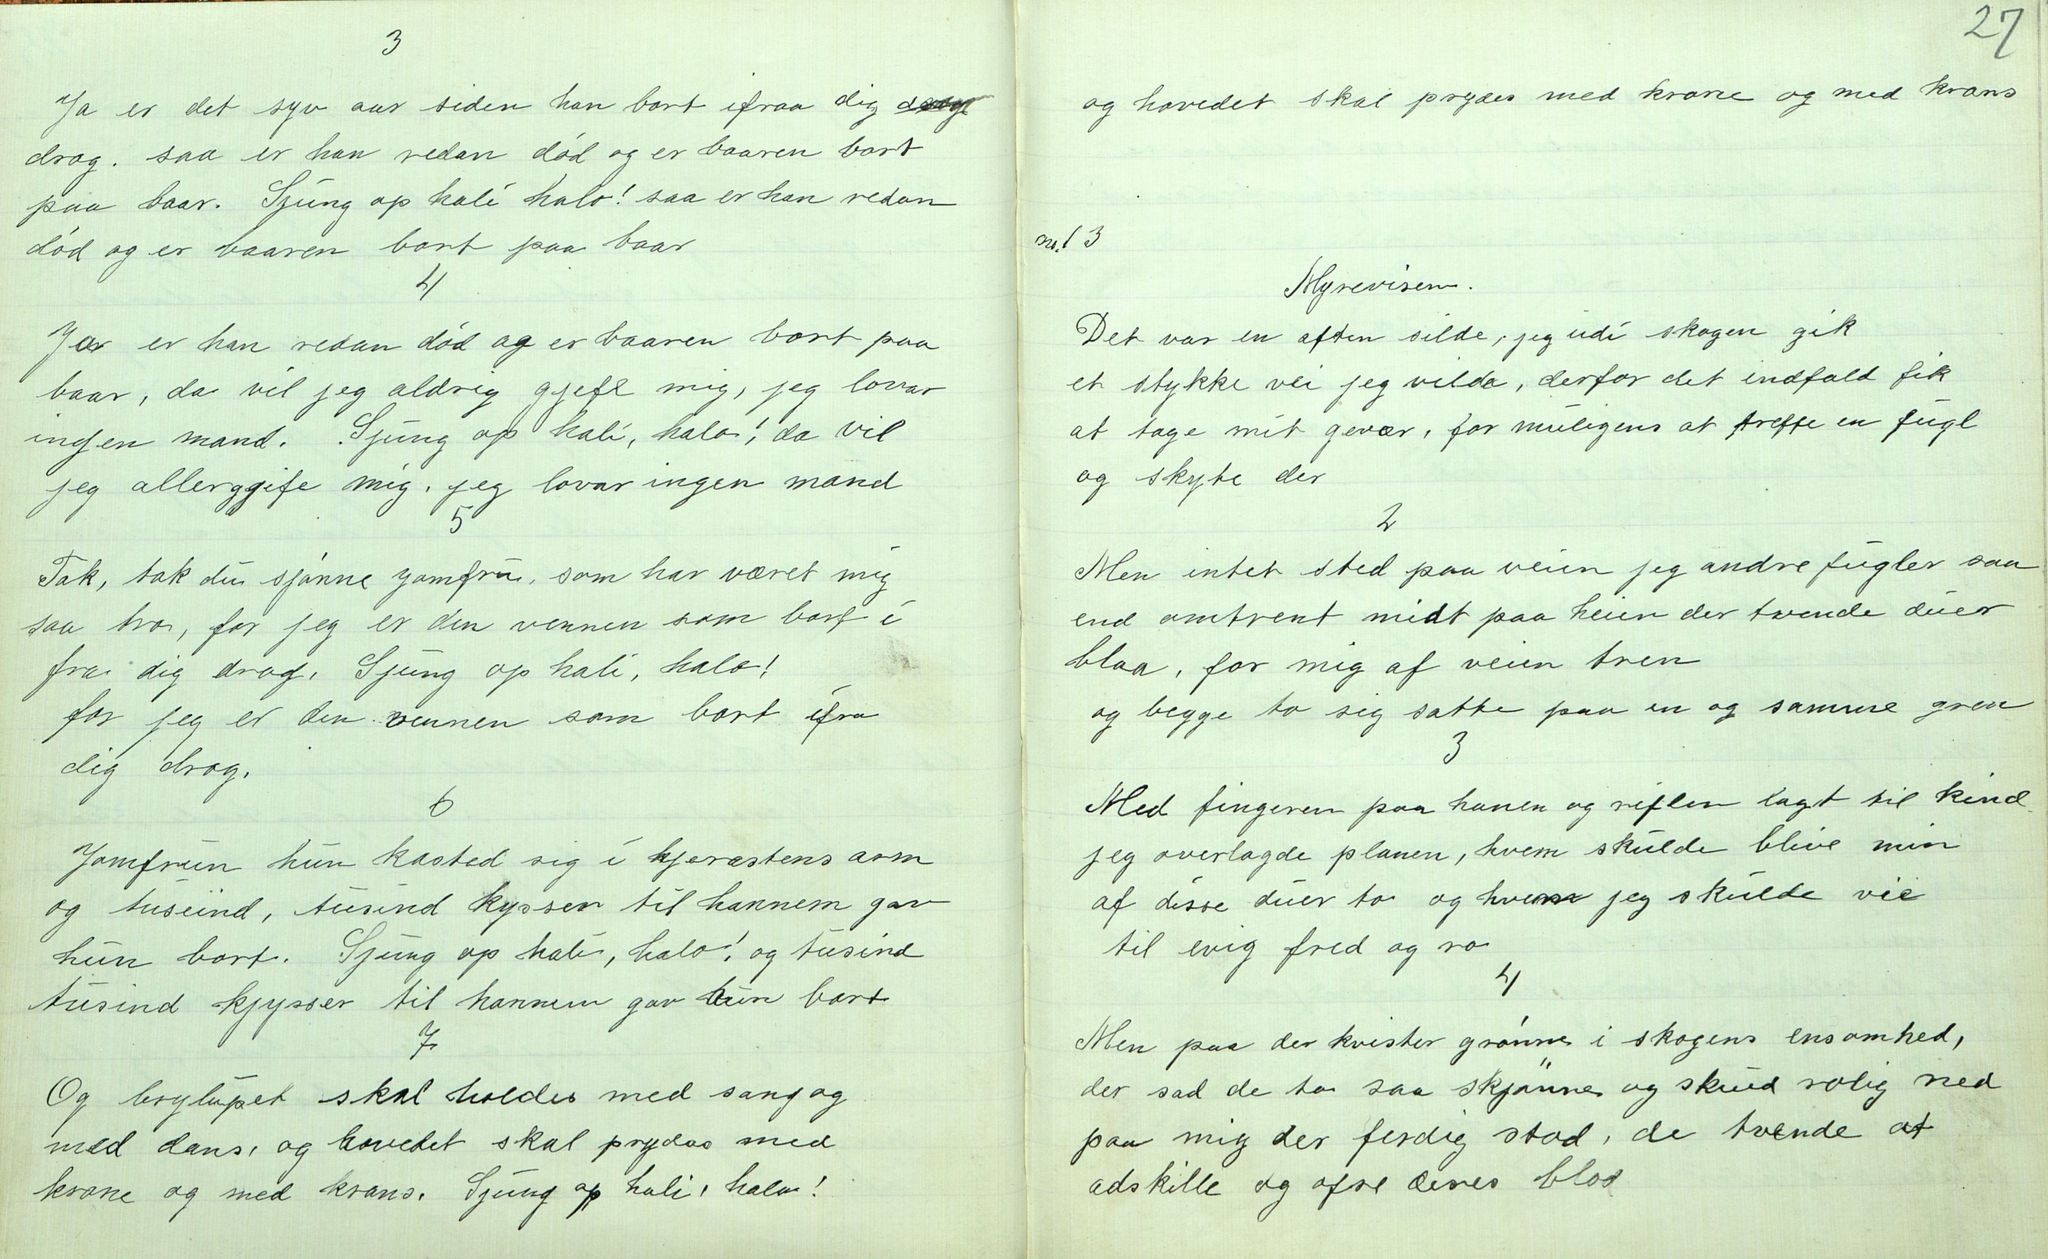 3
Ja er det syv aar siden han bort ifraa dig
drog. saa er han redan död og er baaren bort
paa baar. Sjung op hali halo! saa er han redan
död og er baaren bort paa baar
4
Ja er han redan död og er baaren bort paa
baar, da vil jeg aldrig gjeft mig, jeg lovar
ingen mand. Sjung op hali, halo! da vil
jeg allerggife mig, jeg lovar ingen mand
5
Tak, tak du sjönne jomfru, som har været mig
saa tro, for jeg er den vennen som bort i
fra dig drog, Sjung op hali, halo!
for jeg er den vennen som bort ifra
dig drog.
6
Jomfruen hun kasted sig i hjerastens arm
og tusind, tusind kysser til hannem gav
hun bort. Sjung op hali, halo! og tusind
tusind kjysser til hannem gav hun bort
7
Og brylupet skal holdes med sang og
med dans, og hovedet skal prydas med
krone og med krans. Sjung op hali, halo!
27
og hovedet skal prydes med krone og med krans
no. 13
Myrevisen.
Det var en aften silde, jeg udi skogen gik
et stykke vei jeg vilde, derfor det indfald fik
at tage mit gevær, for muligens at treffe en fugl
og skyte der
2
Men intet sted paa veien jeg andre fugler saa
end omtrent midt paa heien der tvende duer
blaa, for mig af veien tren
og begge to sig satte paa en og samme gren
3
Med fingeren paa hanen og riflen lagt til kind
jeg overlagde planen, hvem skulde blive min
af disse duer to og hvem jeg skulde vie
til evig fred og ro
4
Men paa der kvister grönne i skogens ensomhed,
der sad de to saa skjönne og skued rolig ned
paa mig der ferdig stod, de tvende at
adskille og ofre deres blod